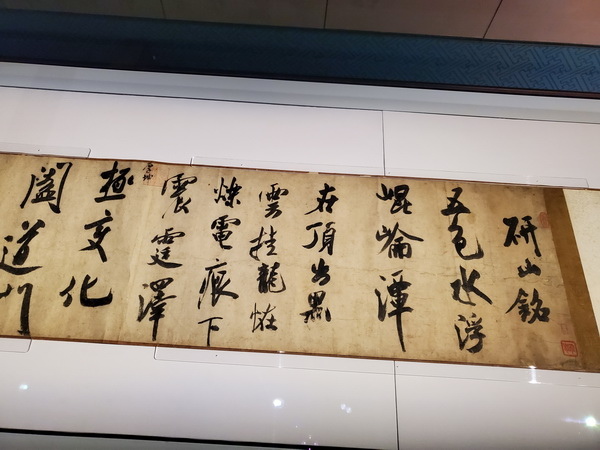 研山銘
五色水浮
崐崘潭
在頂出黑
雲挂龍恠
爍電痕下
震霆澤
厚坤
極變化
闔道門